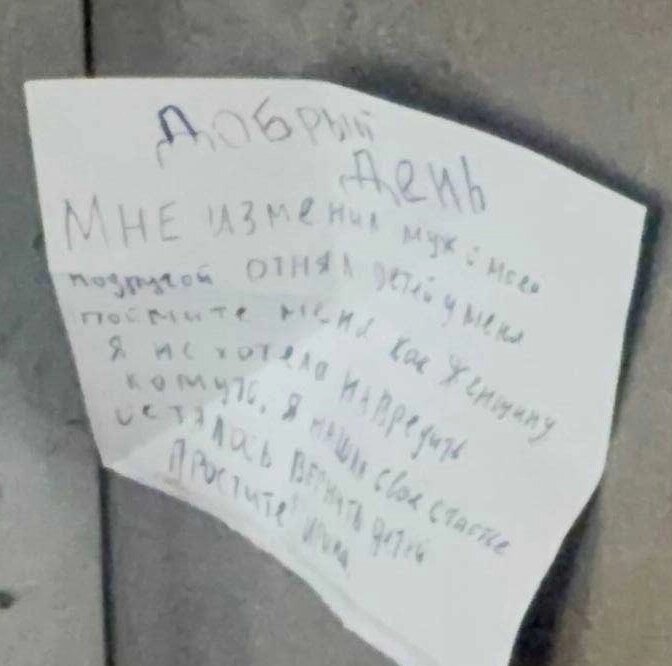 Добрый
День
Мне изменил муж с моей
подругой отнял детей у меня
поймите меня как женщину
я не хотела навредить
комуто, я нашла свое счастье
осталось вернуть детей
Простите!